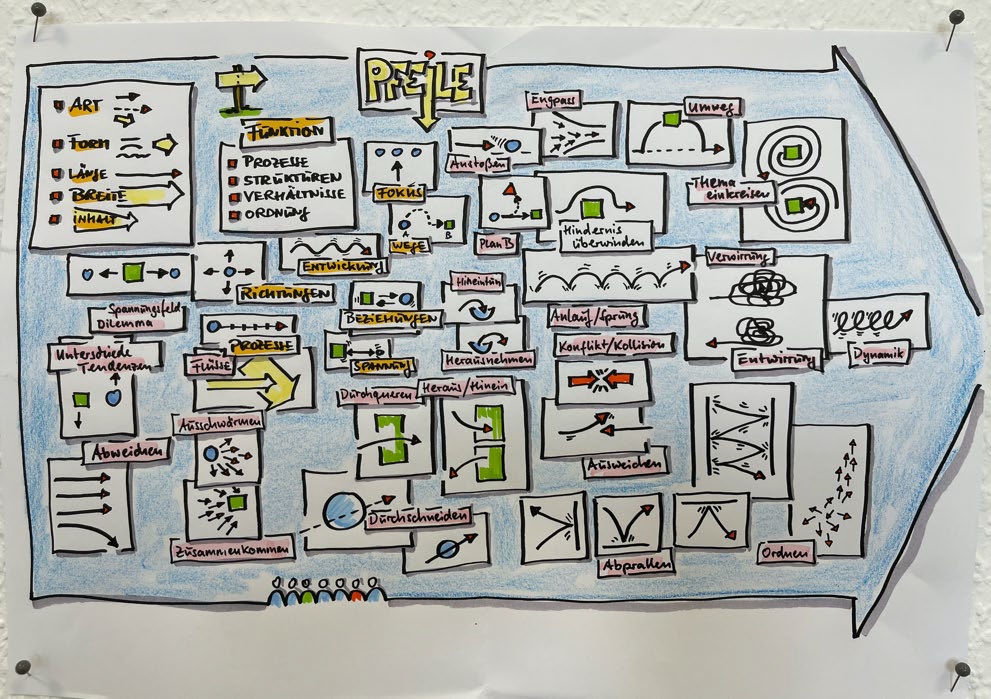 PFEILE
ART
FORM
LÄNGE
BREITE
INHALT
FUNKTION
PROZESSE
STRUKTUREN
VERHÄLTNISSE
ORDNUNG
FOKUS
WEGE
A
B
ENTWICKLUNG
RICHTUNGEN
BEZIEHUNGEN
PROZESSE
SPANNUNG
FLÜSSE
Engpass
Anstoßen
Umweg
Thema
einkreisen
Plan B
Hindernis
überwinden
Hineintun
Herausnehmen
Anlauf/Sprung
Verwirrung
Entwirrung
Dynamik
Spannungsfeld
Dilemma
Unterschiede
Tendenzen
Konflikt/Kollision
Durchqueren
Heraus/Hinein
Ausweichen
Ausschwärmen
Abweichen
Zusammenkommen
Durchschneiden
Abprallen
Ordnen